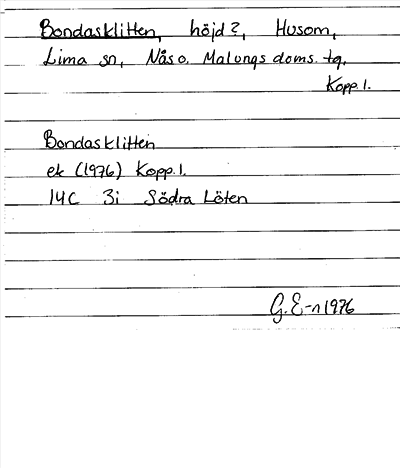 Bondasklitten, höjd?, Husom,
Lima sn, Nås o. Malungs doms. tg,
Kopp. l.
Bondasklitten
ek (1976) Kopp. l.
14C 3i Södra Löten
G. E-n 1976